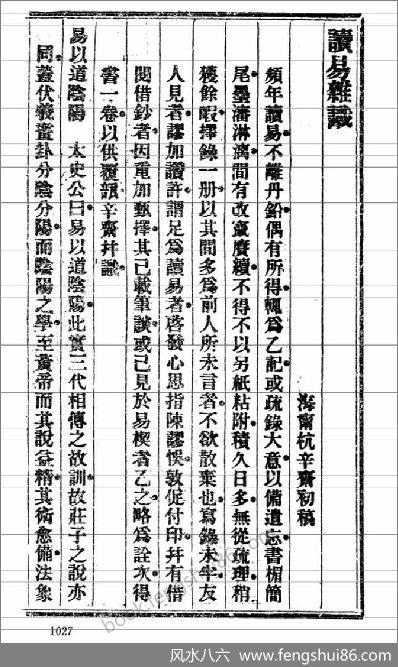 讀易雜識
海甯杭辛齋初稿
頻年讀易不離丹鉛偶有所得輒為乙記或疏錄大意以備遺忘書楣簡
尾墨瀋淋漓間有改竄賡續不得不以另紙粘附積久日多無從疏理稍
獲餘暇擇錄一册以其間多為前人所未言者不欲散棄也寫錄未半友
人見者謬加讚許謂足為讀易者啓發心思指陳謬悞敦促付印幷有借
閱借鈔者因重加甄擇其已載筆談或已見於易楔者乙之略為詮次得
書一卷以供覆瓿辛齋幷識
易以道陰陽 太史公曰易以道陰陽此實三代相傳之故訓故莊子之說亦
同蓋伏羲畫卦分陰分陽而陰陽之學至黃帝而其說益精其術愈備法象
1027
book.fengshui86.com
风水八六 www.fengshui86.com